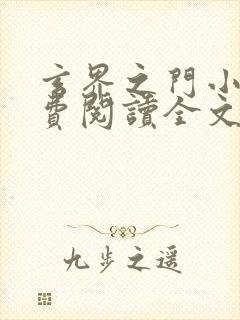 玄界之門小
費閱讀全文
九步之遥